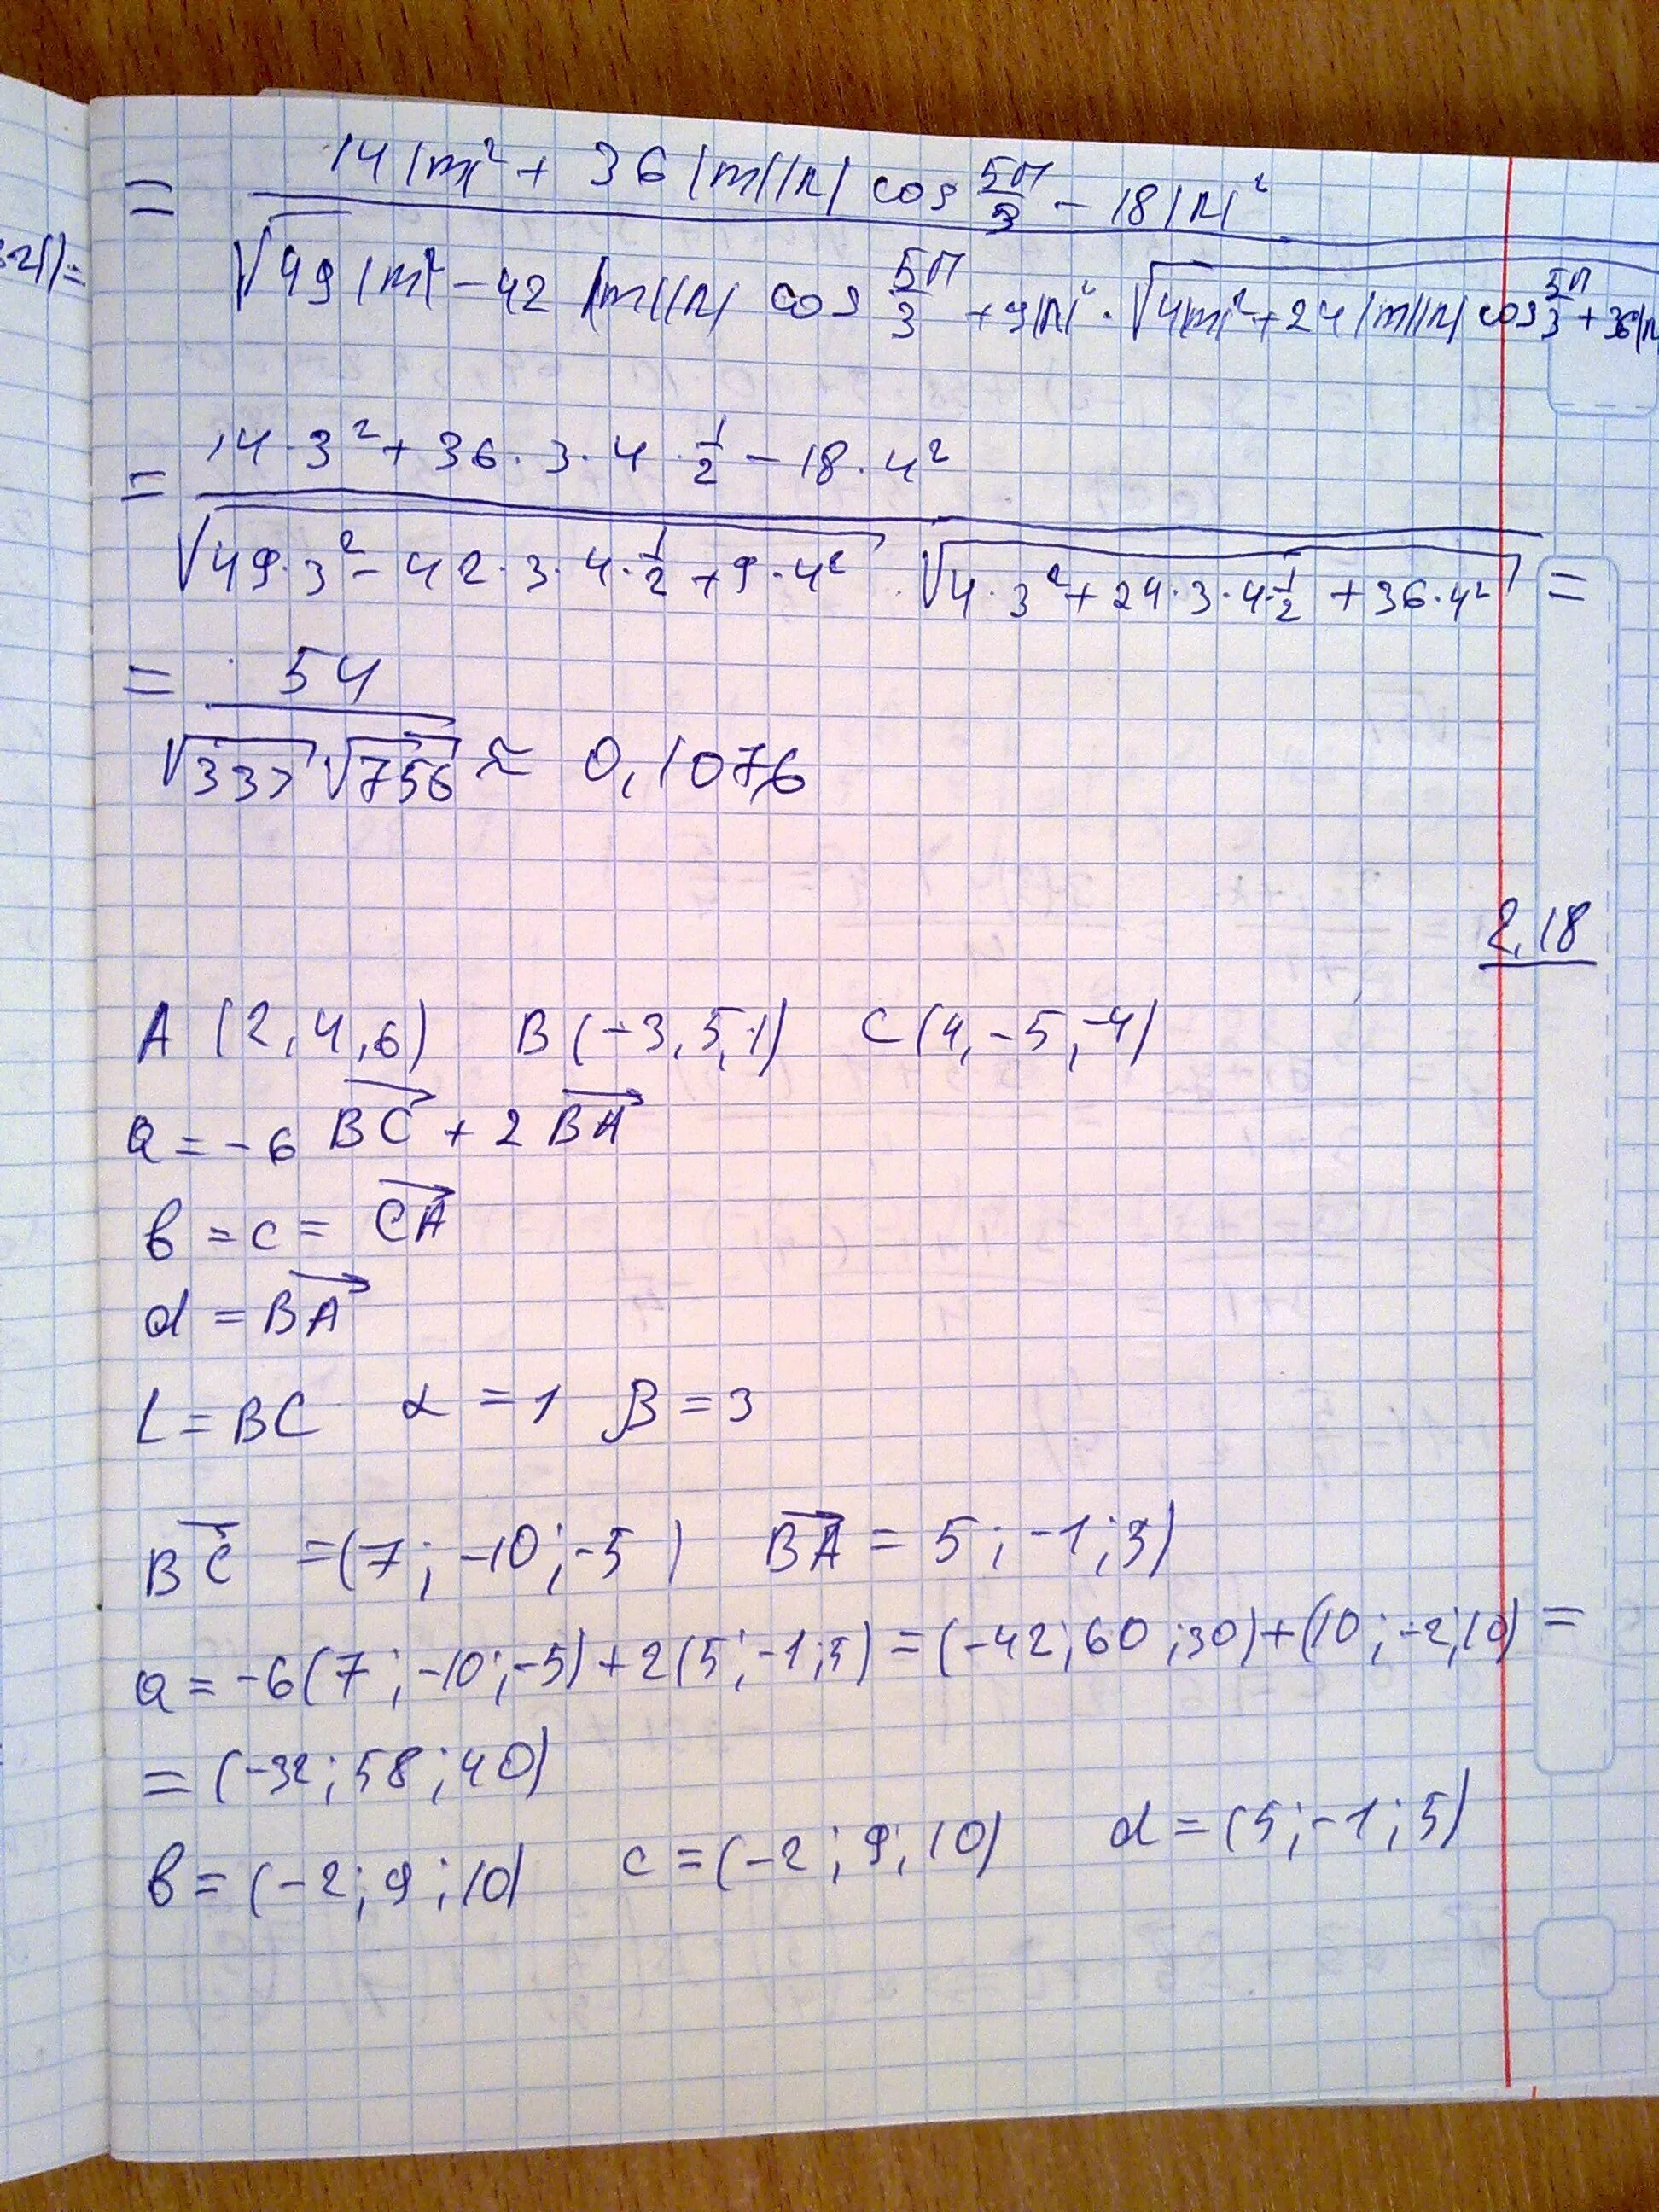 = (14|m|² + 36|m||n| cos 5π/3 - 18|n|²) / (√49|m|² - 42|m||n| cos 5π/3 + 9|n|² · √4|m|² + 24|m||n| cos 5π/3 + 36|n
= (14·3² + 36·3·4·1/2 - 18·4²) / (√49·3² - 42·3·4·1/2 + 9·4² · √4·3² + 24·3·4·1/2 + 36·4²) =
= 54 / (√333 √756) ≈ 0,1076
2,18
A (2,4,6) B (-3,5,1) C(4,-5,-4)
a = -6 BC + 2 BA
в = c = CA
d = BA
L = BC α = 1 β = 3
BC = (7; -10; -5) BA = 5; -1; 3)
a = -6(7; -10; -5) + 2(5; -1; 5) = (-42; 60; 30) + (10; -2; 10) =
= (-32; 58; 40)
в = (-2; 9; 10) c = (-2; 9; 10) d = (5; -1; 5)